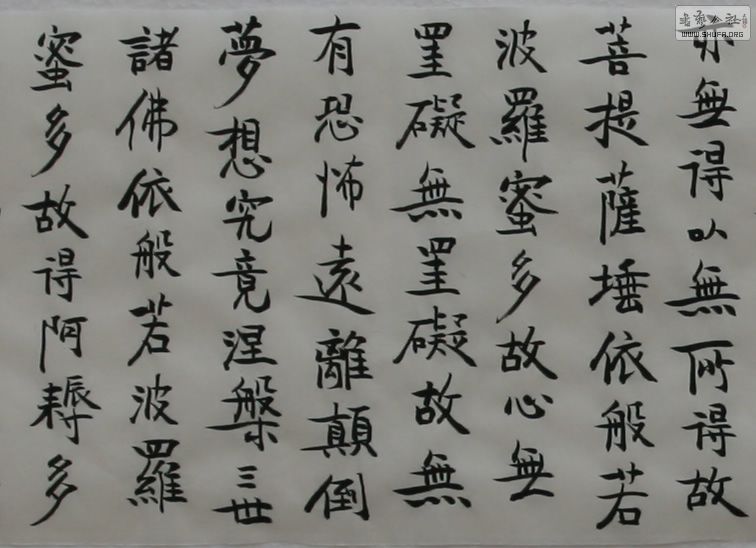 亦無得以無所得故
菩提薩埵依般若
波羅蜜多故心無
罣礙無罣礙故無
有恐怖遠離顛倒
夢想究竟涅槃三世
諸佛依般若波羅
蜜多故得阿耨多
WWW.SHUFA.ORG